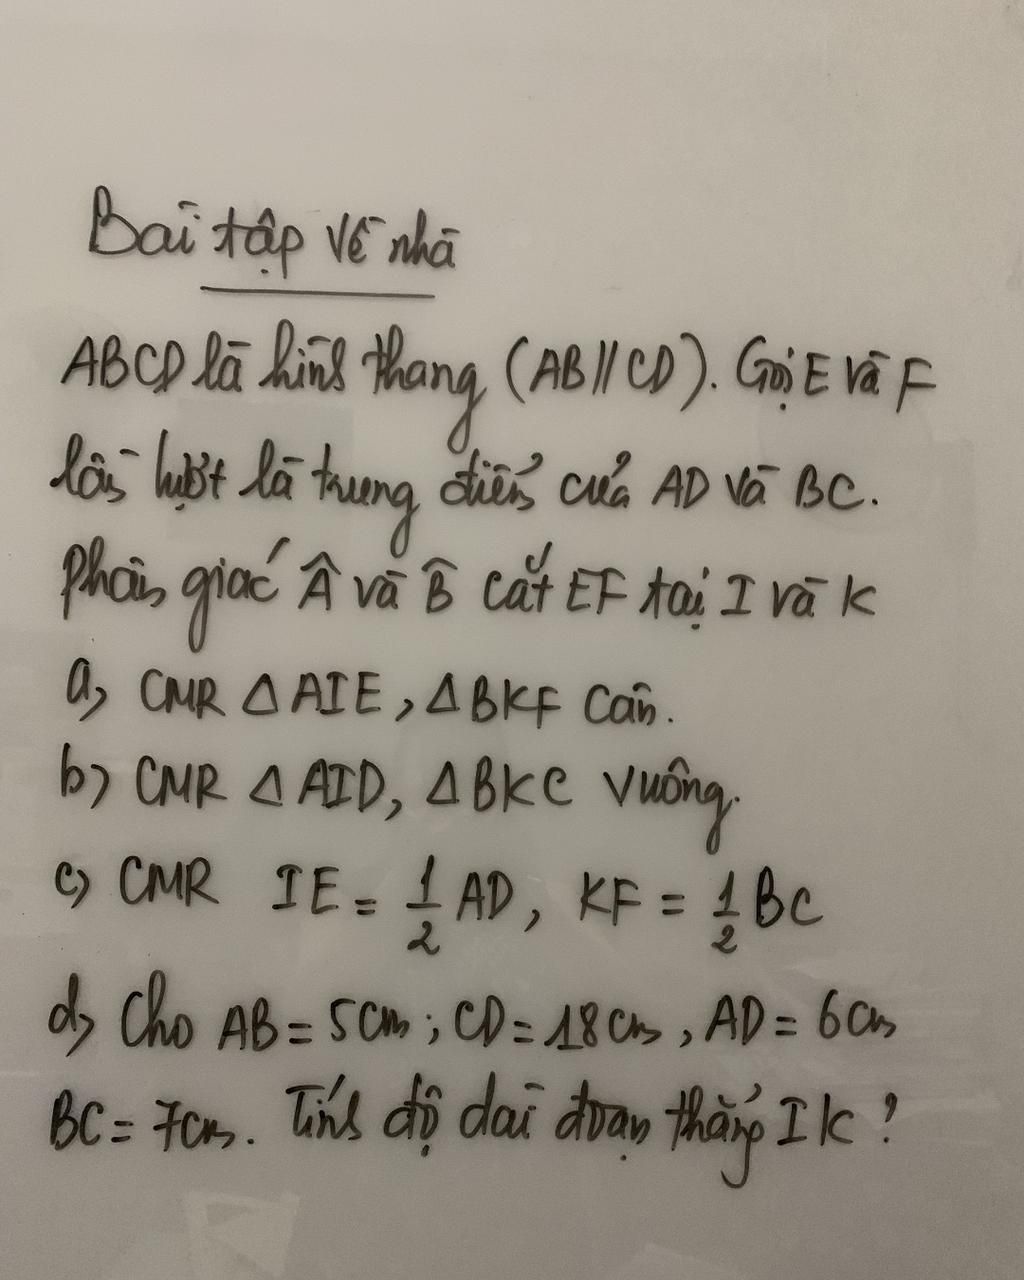 Bài tập về nhà
ABCD là hình thang (AB // CD). Gọi E và F
lần lượt là trung điểm của AD và BC.
Phân giác Â và B̂ cắt EF tại I và K
a, CMR △AIE, △BKF cân.
b) CMR △AID, △BKC vuông.
c) CMR IE = 1/2 AD, KF = 1/2 BC
d, Cho AB = 5cm ; CD = 18cm, AD = 6cm
BC = 7cm. Tính độ dài đoạn thẳng IK ?